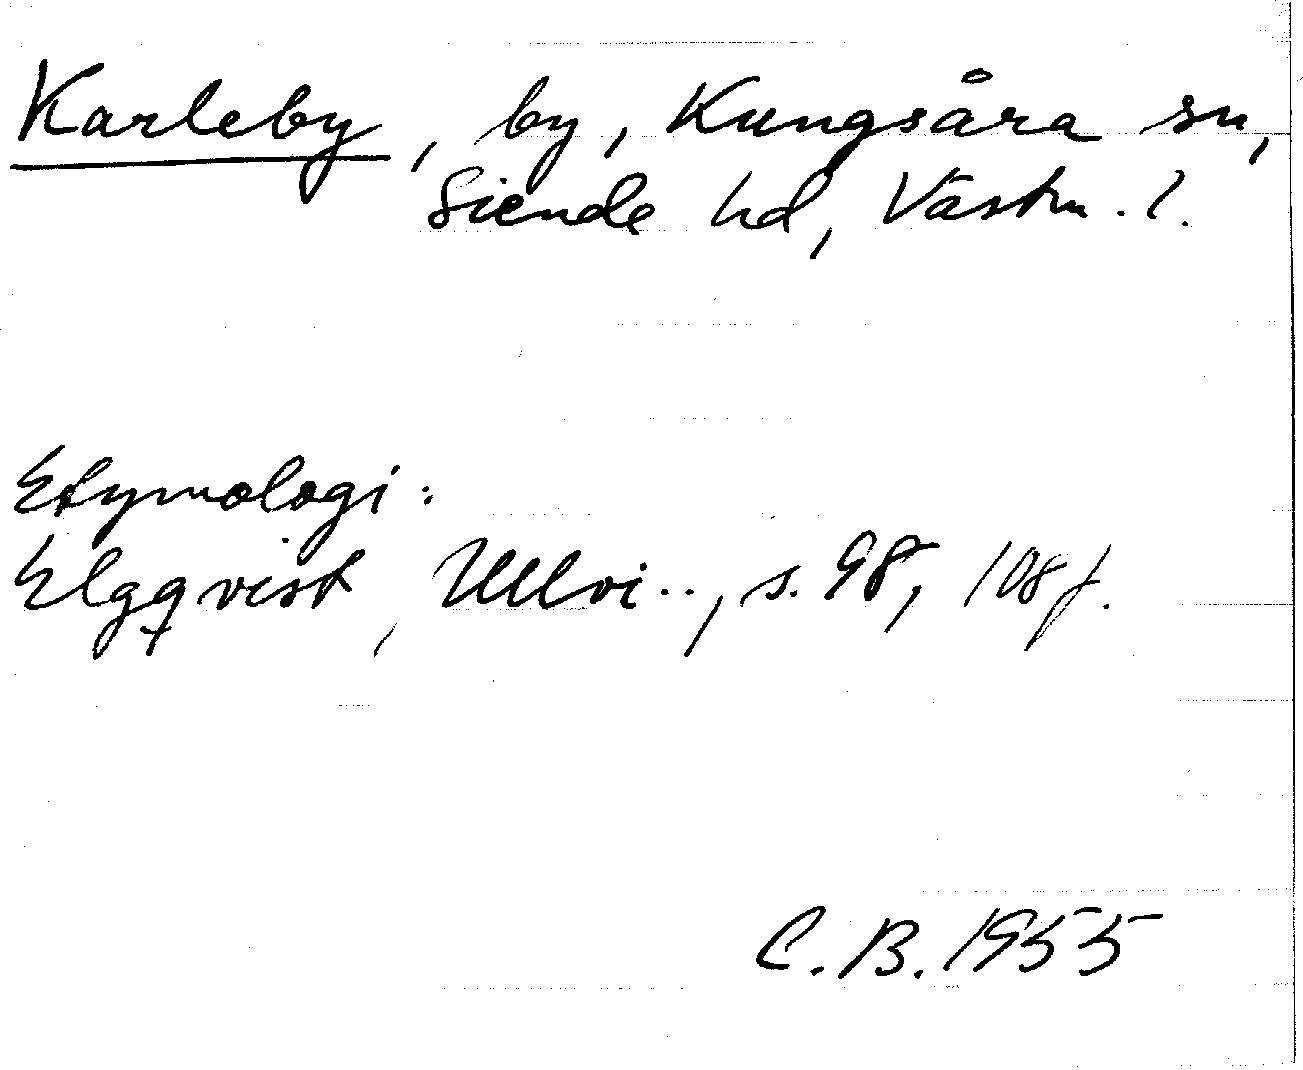 Karleby, by, Kungsåra sn,
Siende hd, Västm. l.
Etymologi:
Elgqvist, Ullvi.., s. 98, 108 f.
C.B. 1955